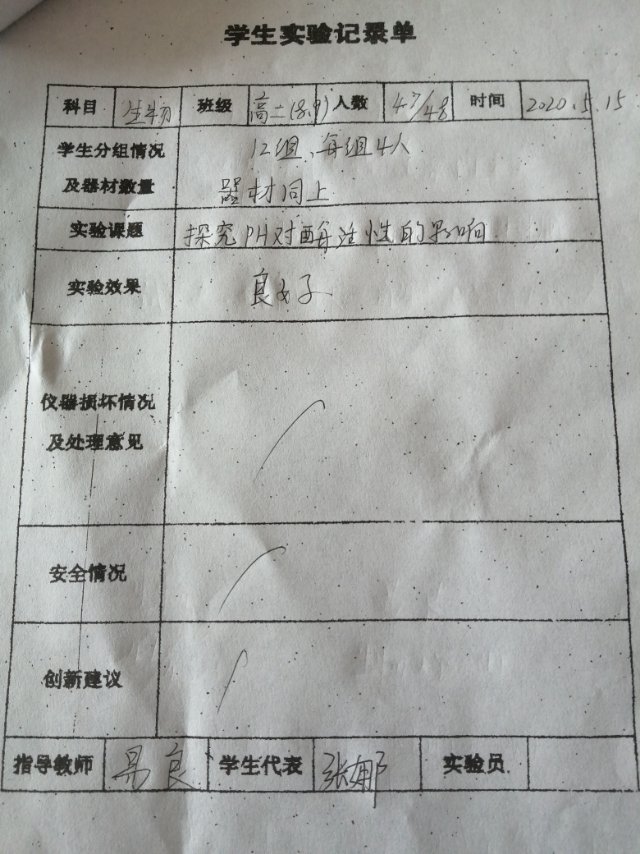 学生实验记录单
科目 生物 班级 高二(8.9) 人数 47/48 时间 2020.5.15
学生分组情况及器材数量 12组、每组4人
器材同上
实验课题 探究PH对酶活性的影响
实验效果 良好
仪器损坏情况
及处理意见
安全情况
创新建议
指导教师 易良 学生代表 张娜 实验员